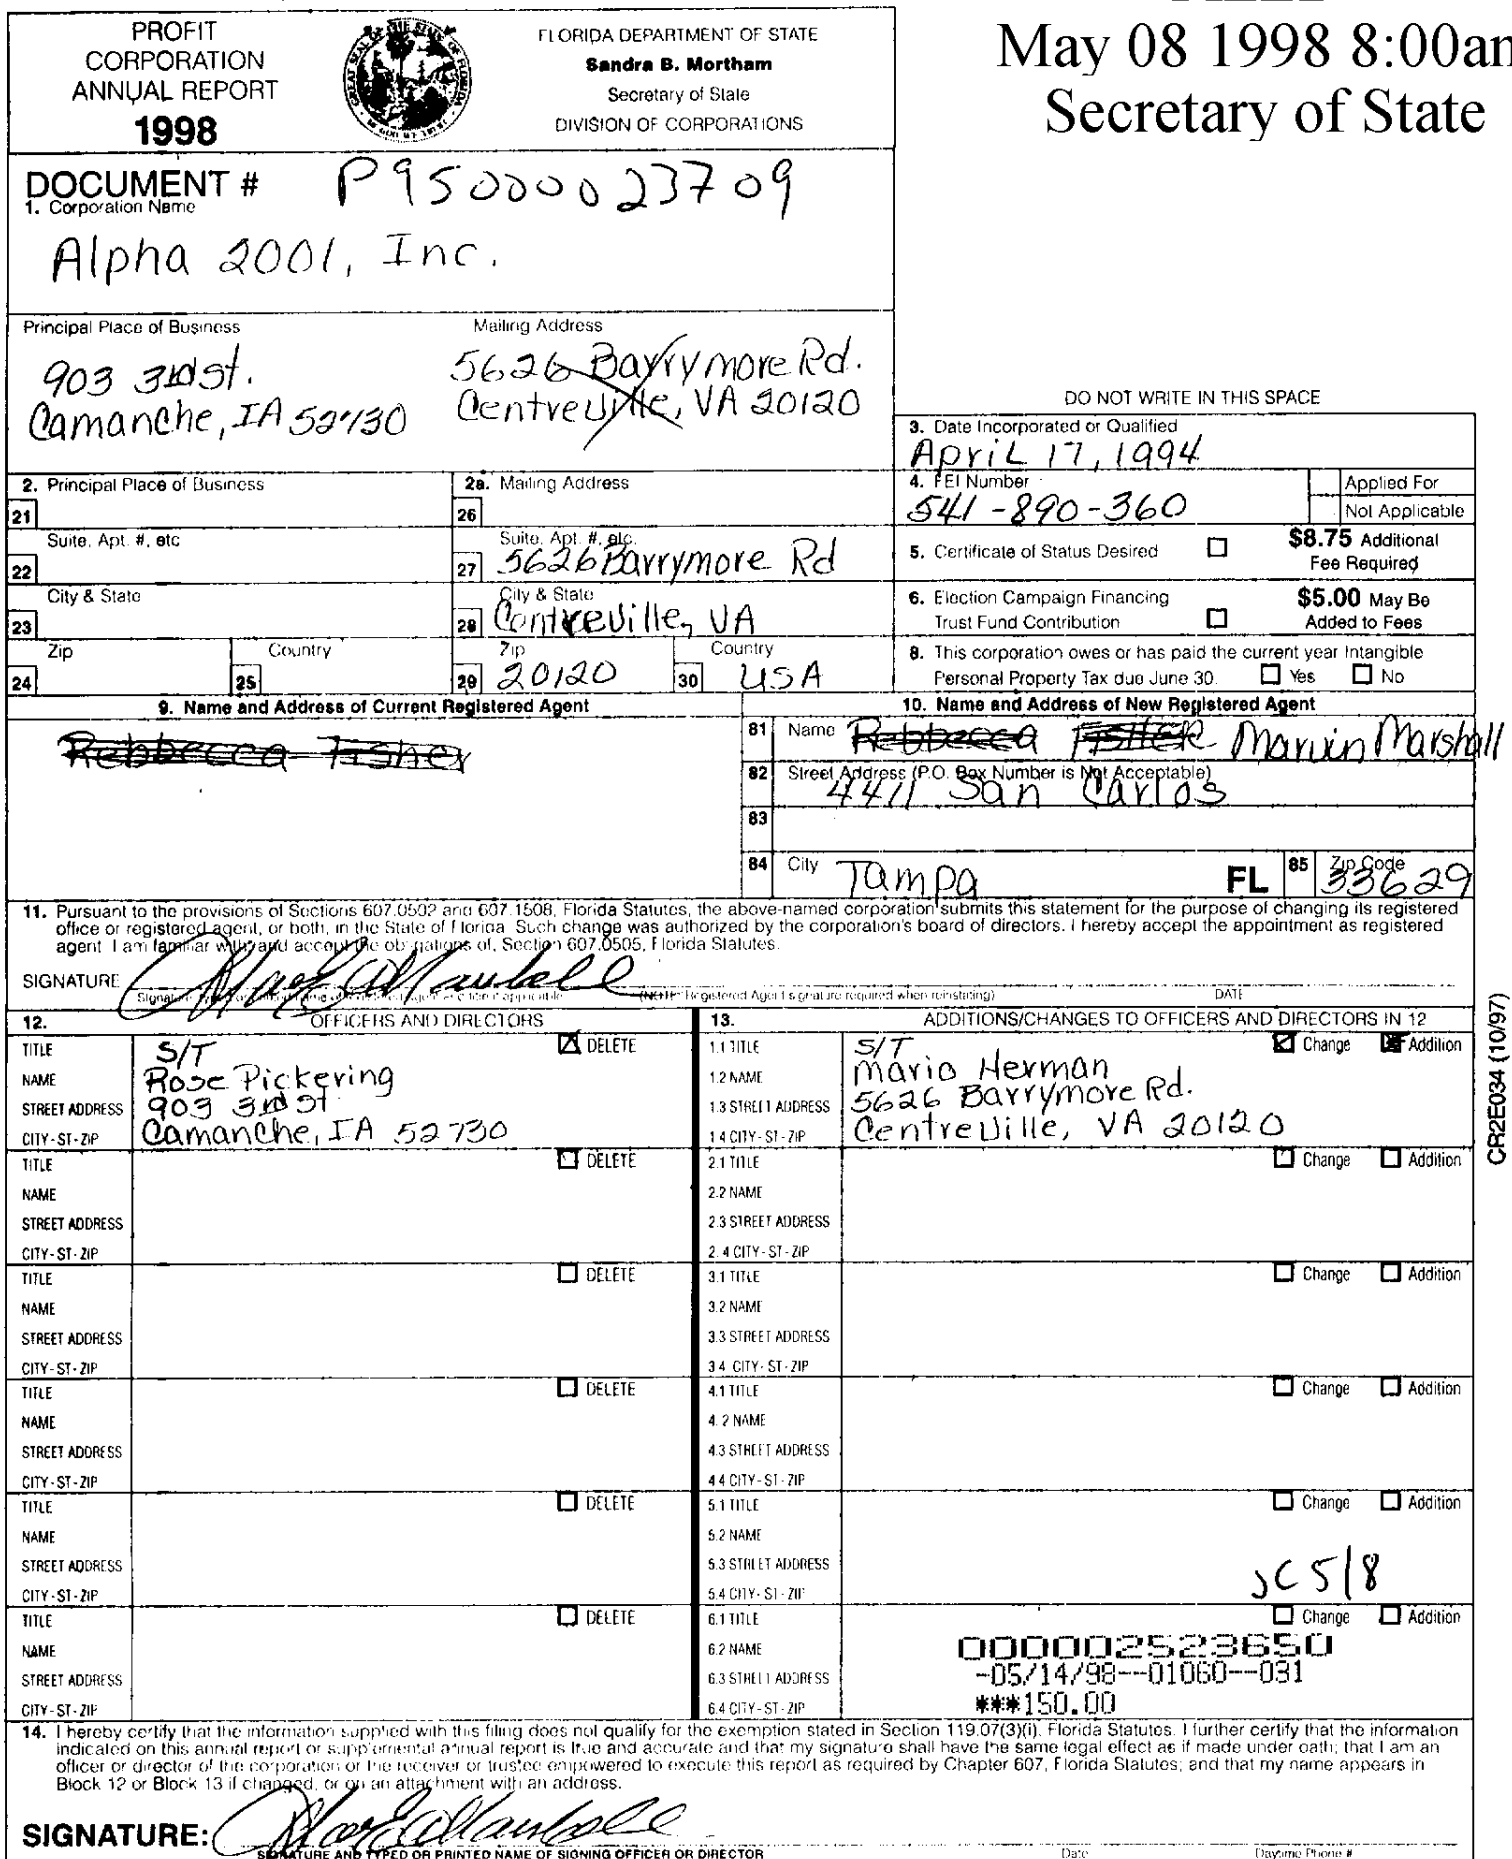 PROFIT
CORPORATION
ANNUAL REPORT
1998
FLORIDA DEPARTMENT OF STATE
Sandra B. Mortham
Secretary of State
DIVISION OF CORPORATIONS
May 08 1998 8:00am
Secretary of State
DOCUMENT # P95000023709
1. Corporation Name
Alpha 2001, Inc.
Principal Place of Business
903 3rd st.
Camanche, IA 52730
Mailing Address
5626 Barrymore Rd.
Centreville, VA 20120
DO NOT WRITE IN THIS SPACE
3. Date Incorporated or Qualified
April 17, 1994
2. Principal Place of Business
21
2a. Mailing Address
26
4. FEI Number
541-890-360
Applied For
Not Applicable
Suite, Apt. #, etc
22
Suite, Apt. #, etc.
27 5626 Barrymore Rd
5. Certificate of Status Desired
$8.75 Additional
Fee Required
City & State
23
City & State
28 Centreville, VA
6. Election Campaign Financing
Trust Fund Contribution
$5.00 May Be
Added to Fees
Zip
24
Country
25
Zip
29 20120
Country
30 USA
8. This corporation owes or has paid the current year Intangible
Personal Property Tax due June 30. Yes No
9. Name and Address of Current Registered Agent
Rebbecca Fisher
10. Name and Address of New Registered Agent
81 Name Rebbecca Fisher Marvin Marshall
82 Street Address (P.O. Box Number is Not Acceptable)
4411 San Carlos
83
84 City Tampa FL 85 Zip Code 33629
11. Pursuant to the provisions of Sections 607.0502 and 607.1508, Florida Statutes, the above-named corporation submits this statement for the purpose of changing its registered
office or registered agent, or both, in the State of Florida. Such change was authorized by the corporation's board of directors. I hereby accept the appointment as registered
agent. I am familiar with, and accept the obligations of, Section 607.0505, Florida Statutes.
SIGNATURE
(NOTE: Registered Agent signature required when reinstating) DATE
12. OFFICERS AND DIRECTORS
TITLE S/T DELETE
NAME Rose Pickering
STREET ADDRESS 903 3rd st
CITY-ST-ZIP Camanche, IA 52730
TITLE DELETE
NAME
STREET ADDRESS
CITY-ST-ZIP
TITLE DELETE
NAME
STREET ADDRESS
CITY-ST-ZIP
TITLE DELETE
NAME
STREET ADDRESS
CITY-ST-ZIP
TITLE DELETE
NAME
STREET ADDRESS
CITY-ST-ZIP
TITLE DELETE
NAME
STREET ADDRESS
CITY-ST-ZIP
13. ADDITIONS/CHANGES TO OFFICERS AND DIRECTORS IN 12
1.1 TITLE S/T Change Addition
1.2 NAME Mario Herman
1.3 STREET ADDRESS 5626 Barrymore Rd.
1.4 CITY-ST-ZIP Centreville, VA 20120
2.1 TITLE Change Addition
2.2 NAME
2.3 STREET ADDRESS
2.4 CITY-ST-ZIP
3.1 TITLE Change Addition
3.2 NAME
3.3 STREET ADDRESS
3.4 CITY-ST-ZIP
4.1 TITLE Change Addition
4.2 NAME
4.3 STREET ADDRESS
4.4 CITY-ST-ZIP
5.1 TITLE Change Addition
5.2 NAME
5.3 STREET ADDRESS
5.4 CITY-ST-ZIP
JC 5/8
6.1 TITLE Change Addition
6.2 NAME 000002523650
6.3 STREET ADDRESS -05/14/98--01060--031
6.4 CITY-ST-ZIP ***150.00
CR2E034 (10/97)
14. I hereby certify that the information supplied with this filing does not qualify for the exemption stated in Section 119.07(3)(i), Florida Statutes. I further certify that the information
indicated on this annual report or supplemental annual report is true and accurate and that my signature shall have the same legal effect as if made under oath; that I am an
officer or director of the corporation or the receiver or trustee empowered to execute this report as required by Chapter 607, Florida Statutes; and that my name appears in
Block 12 or Block 13 if changed, or on an attachment with an address.
SIGNATURE:
SIGNATURE AND TYPED OR PRINTED NAME OF SIGNING OFFICER OR DIRECTOR Date Daytime Phone #